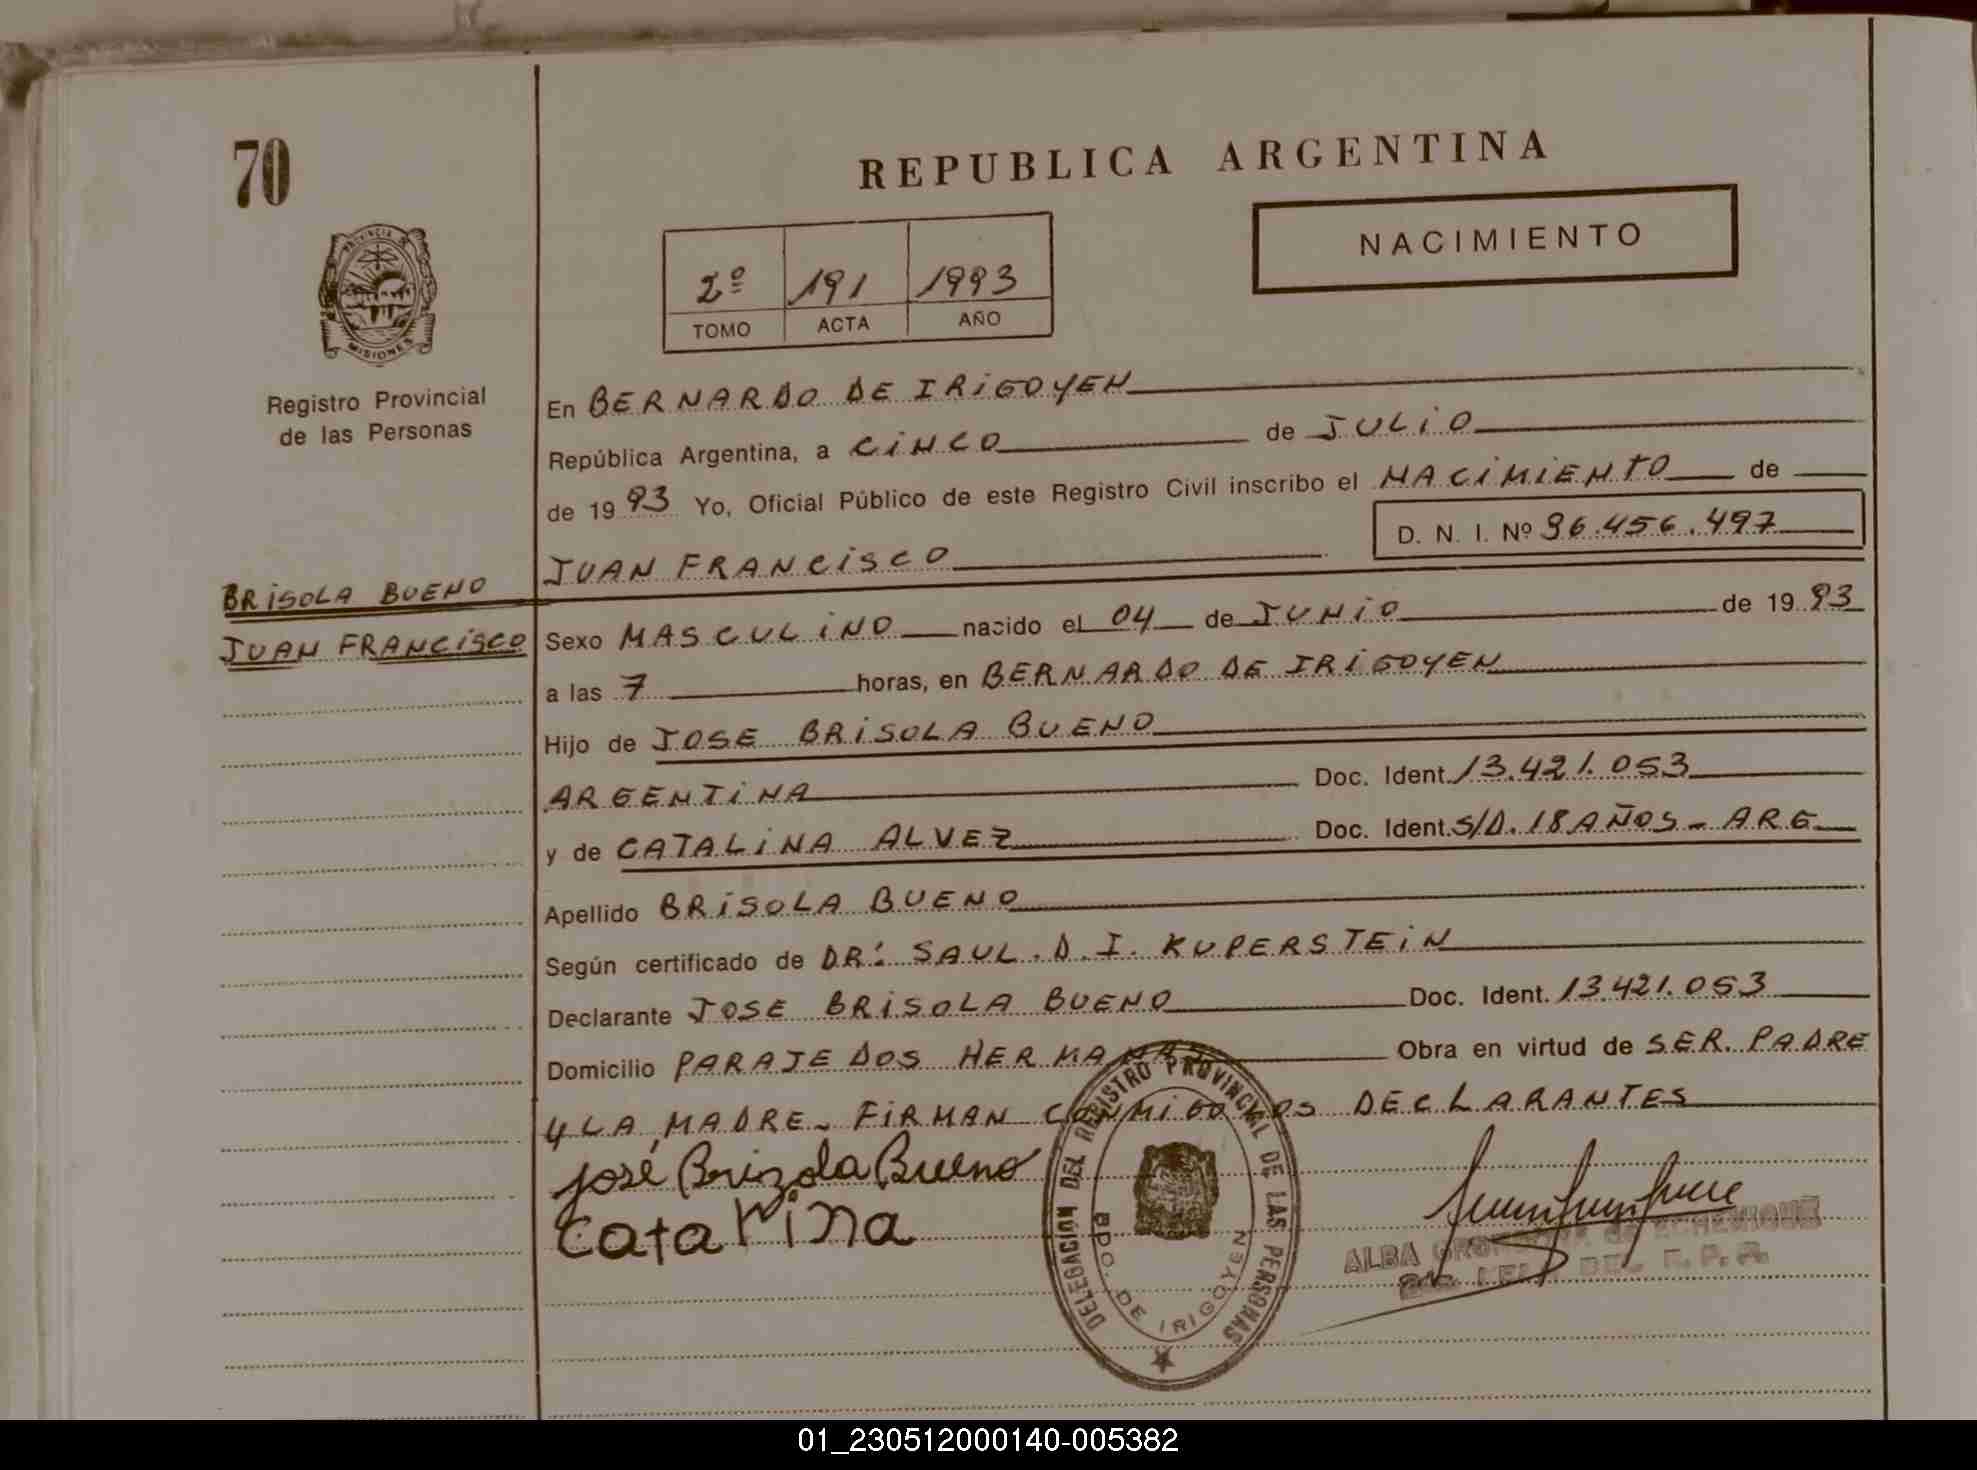 70
REPUBLICA ARGENTINA
NACIMIENTO
2º 191 1993
TOMO ACTA AÑO
PROVINCIA DE
MISIONES
Registro Provincial
de las Personas
En BERNARDO DE IRIGOYEN
República Argentina, a CINCO de JULIO
de 1993 Yo, Oficial Público de este Registro Civil inscribo el NACIMIENTO de
D. N. I. Nº 36.456.497
JUAN FRANCISCO
BRISOLA BUENO
JUAN FRANCISCO
Sexo MASCULINO nacido el 04 de JUNIO de 1993
a las 7 horas, en BERNARDO DE IRIGOYEN
Hijo de JOSE BRISOLA BUENO
ARGENTINA Doc. Ident. 13.421.053
y de CATALINA ALVEZ Doc. Ident. S/D. 18 AÑOS - ARG
Apellido BRISOLA BUENO
Según certificado de DR: SAUL. D. I. KUPERSTEIN
Declarante JOSE BRISOLA BUENO Doc. Ident. 13.421.053
Domicilio PARAJE DOS HERMANAS Obra en virtud de SER. PADRE
Y LA MADRE - FIRMAN CONMIGO LOS DECLARANTES
José Brizola Bueno
Catarina
DELEGACION DEL REGISTRO PROVINCIAL DE LAS PERSONAS
BDO. DE IRIGOYEN
ALBA de ECHENIQUE
DEL R. P. P.
01_230512000140-005382